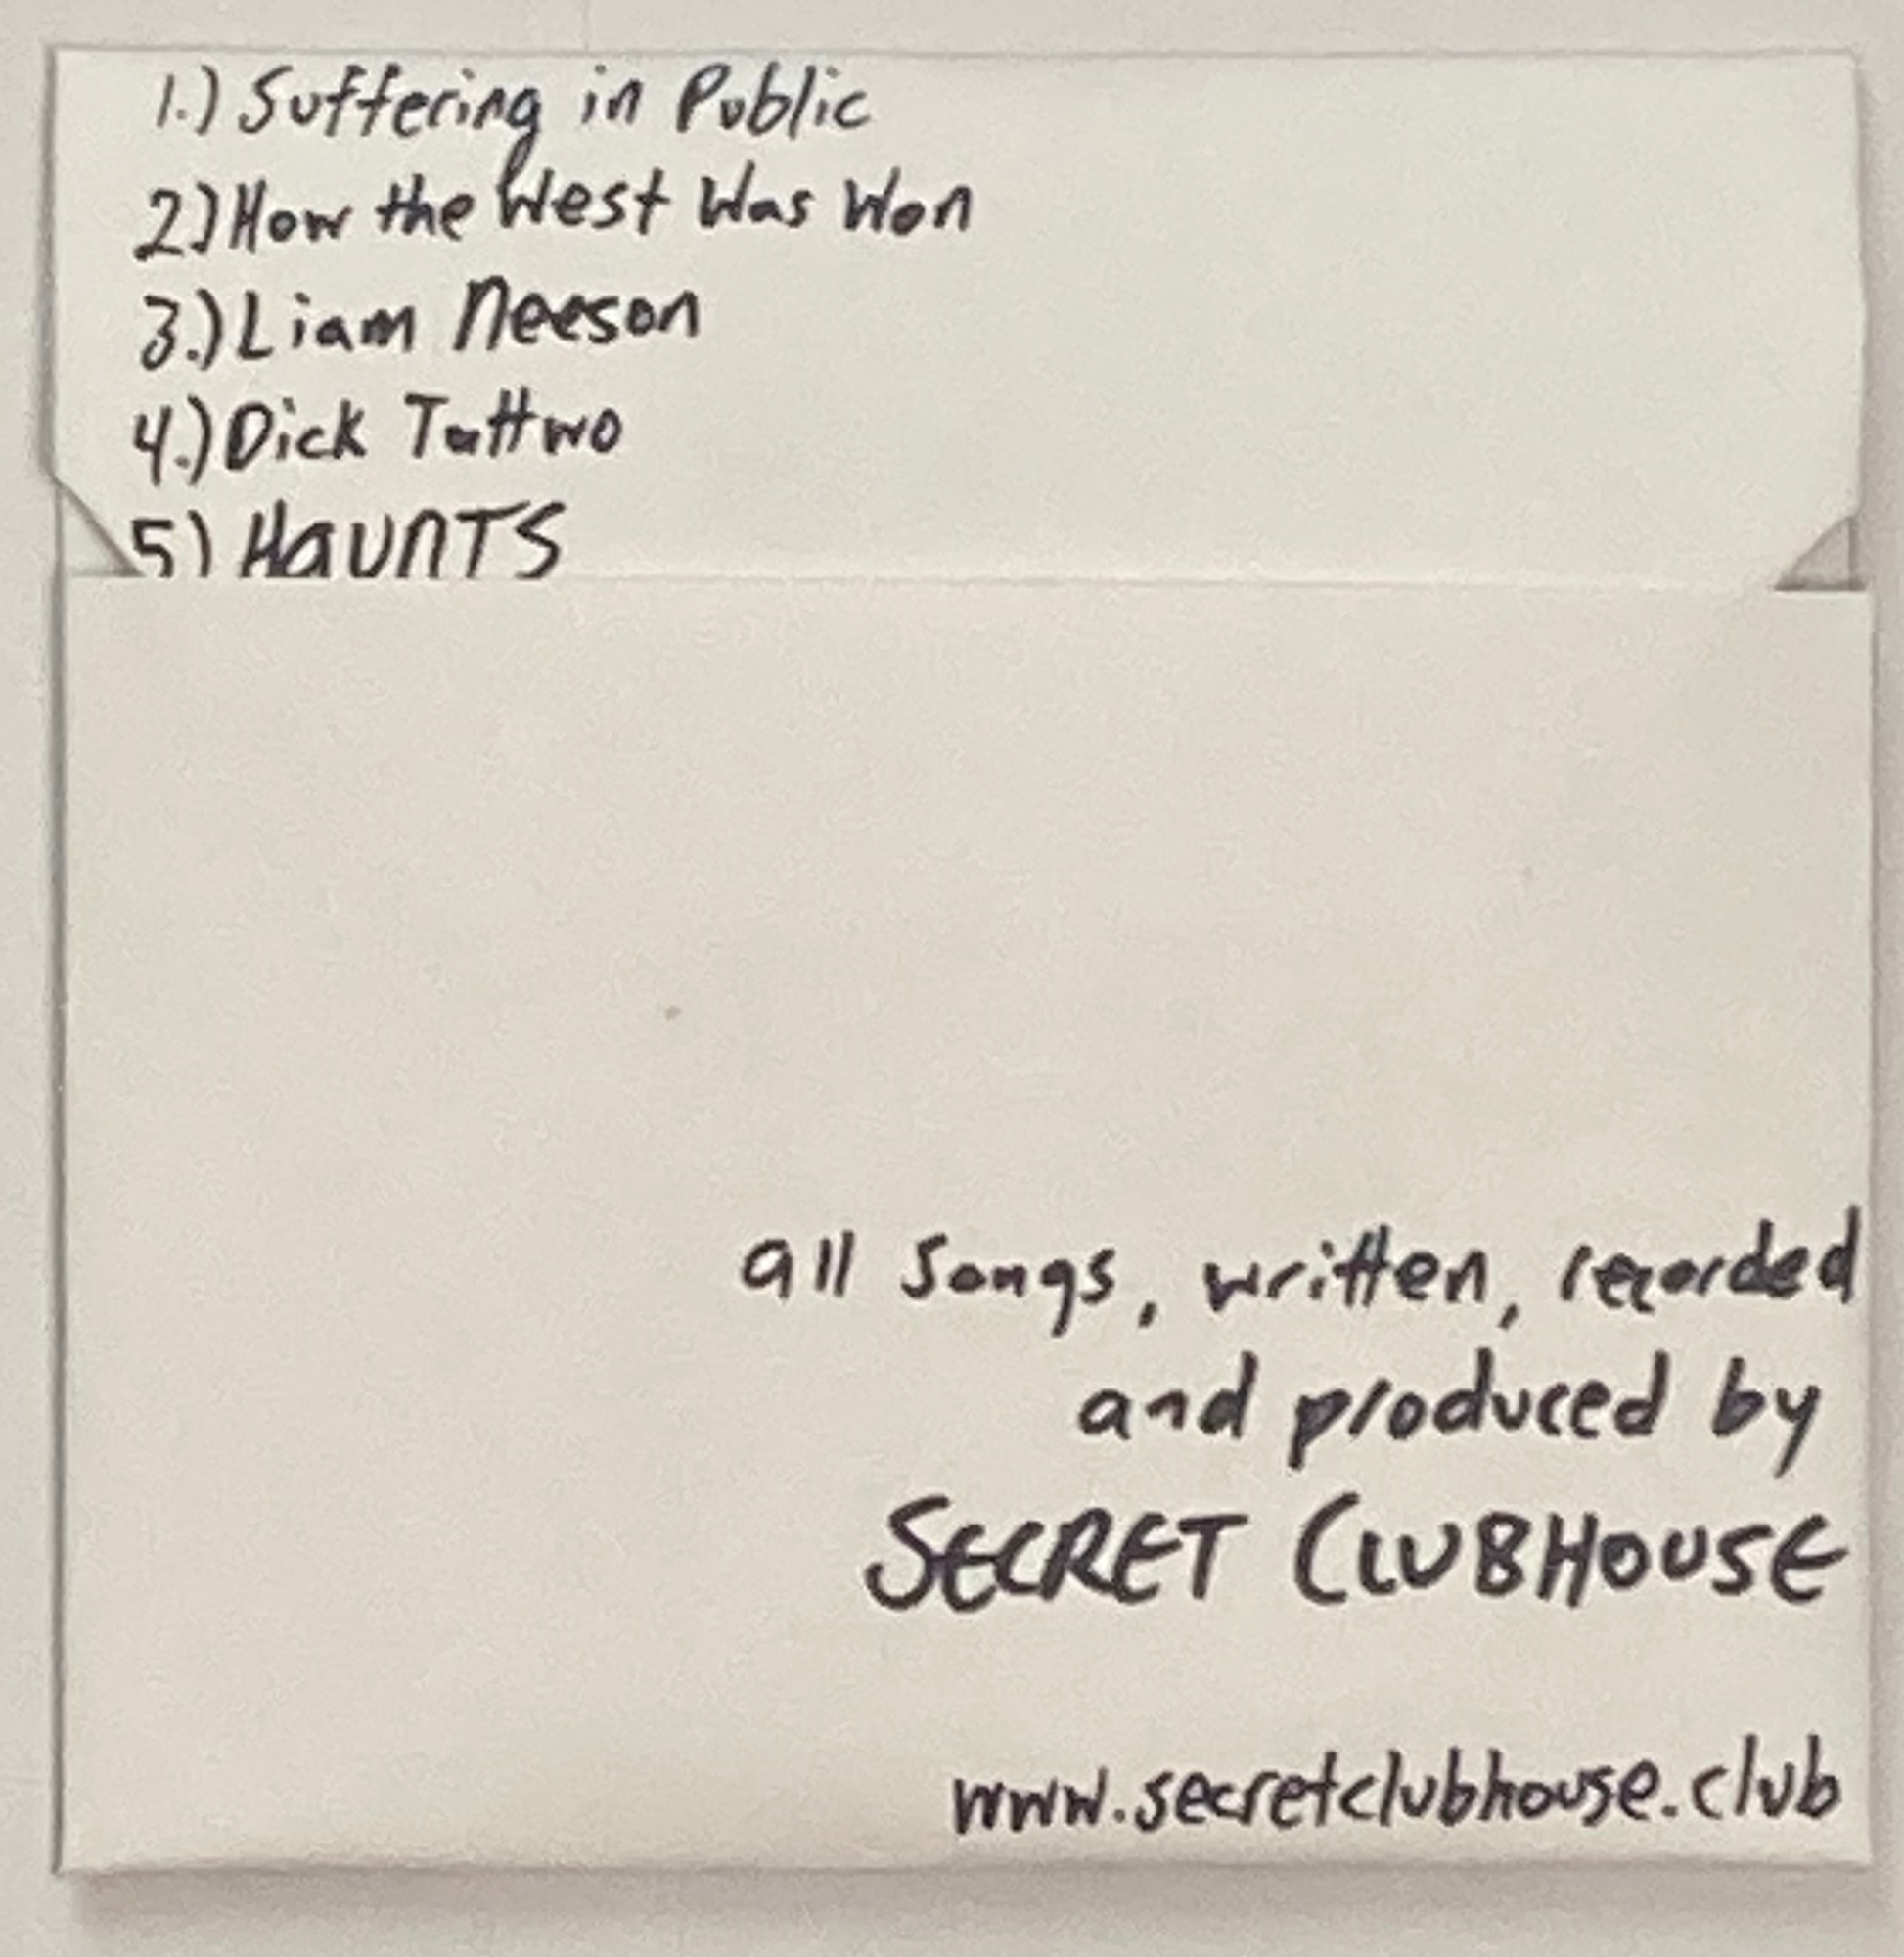 1.) Suffering in Public
2) How the West Was Won
3.) Liam Neeson
4.) Dick Tattwo
5) HAUNTS
all songs, written, recorded
and produced by
SECRET CLUBHOUSE
www.secretclubhouse.club